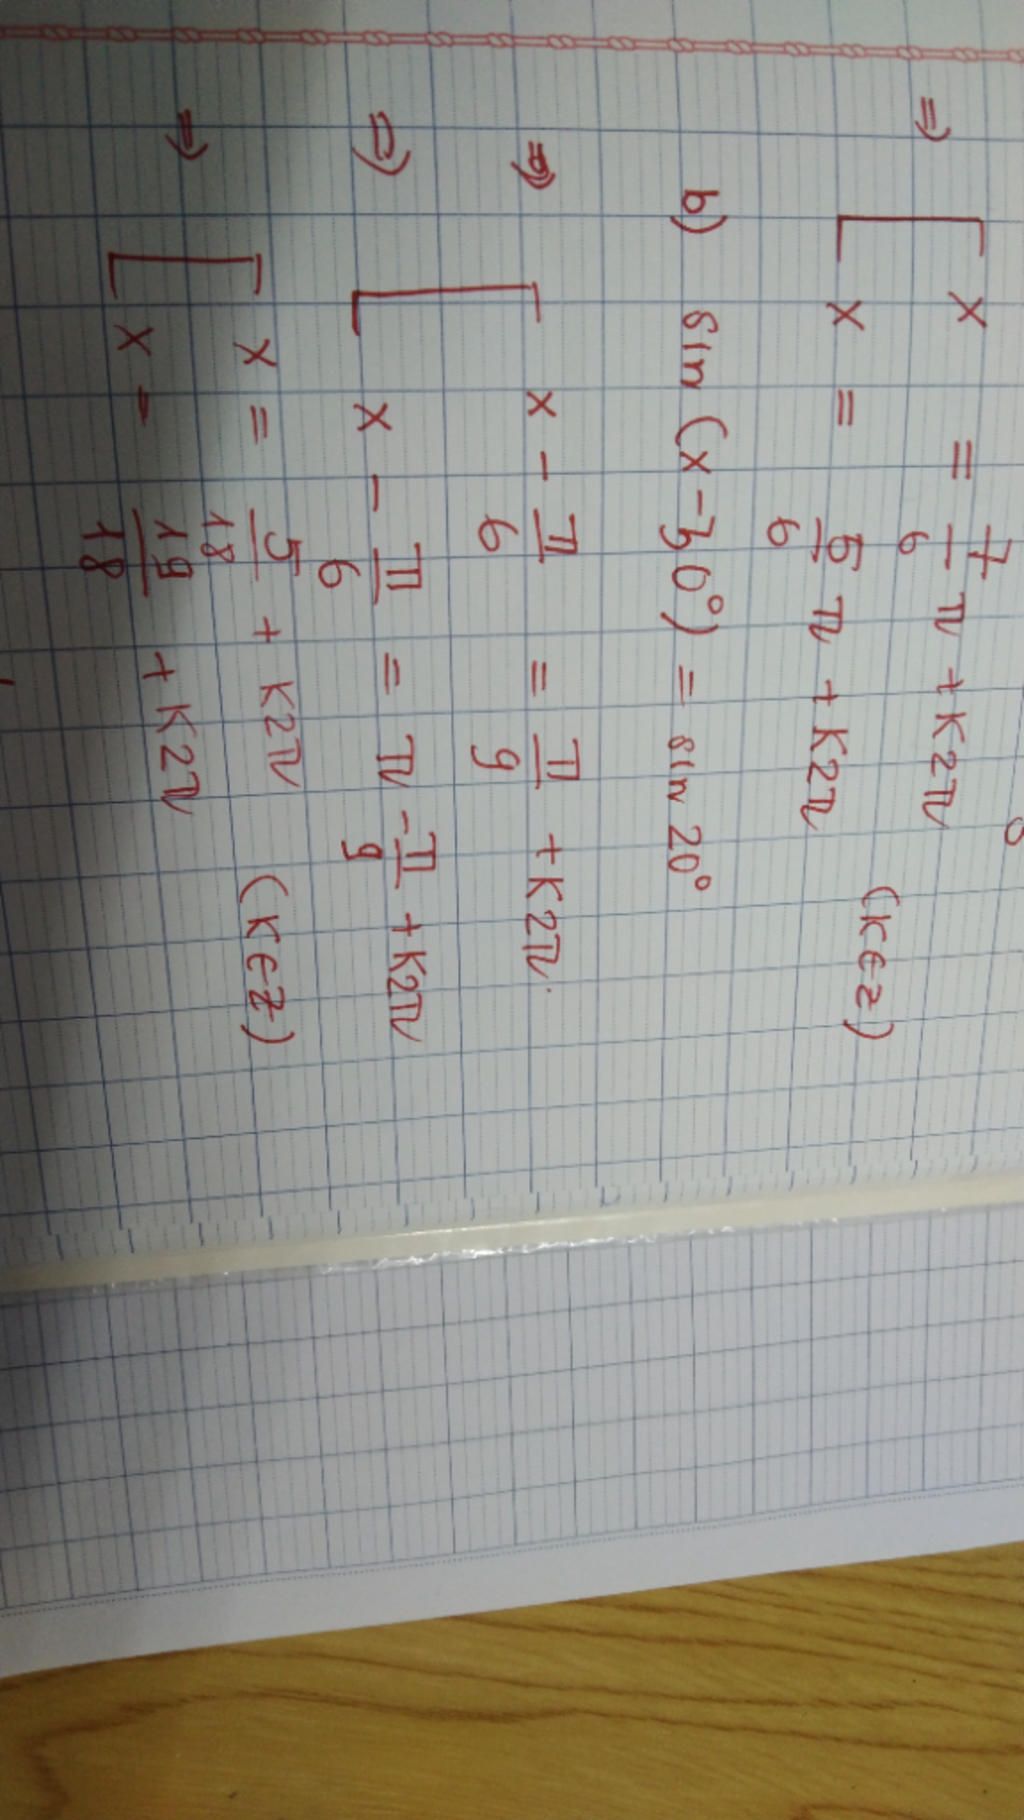 ⇒ [ x = 7/6 π + K2π
x = 5/6 π + K2π (K∈Z)
b) sin (x - 30°) = sin 20°
⇒ [ x - π/6 = π/9 + K2π.
⇒ x - π/6 = π - π/9 + K2π
⇒ [ x = 5/18 + K2π (K∈Z)
x - 19/18 + K2π